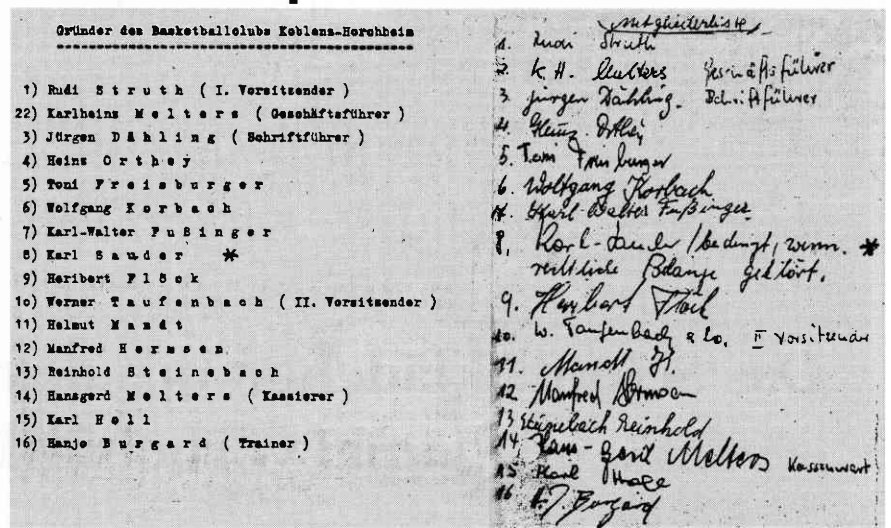 Gründer des Basketballclubs Koblenz-Horchheim
1) Rudi Struth ( I. Vorsitzender )
22) Karlheinz Melters ( Geschäftsführer )
3) Jürgen Dähling ( Schriftführer )
4) Heinz Orthey
5) Toni Freisburger
6) Wolfgang Korbach
7) Karl-Walter Fußinger
8) Karl Sauder *
9) Heribert Flöck
1o) Werner Taufenbach ( II. Vorsitzender )
11) Helmut Mandt
12) Manfred Hermsen
13) Reinhold Steinebach
14) Hansgerd Melters ( Kassierer )
15) Karl Holl
16) Hanjo Burgard ( Trainer )
Mitgliederliste
1. Rudi Struth
2. K. H. Melters Geschäftsführer
3. Jürgen Dähling. Schriftführer
4. Heinz Orthey
5. Toni Freisburger
6. Wolfgang Korbach
7. Karl-Walter Fußinger
8. Karl Sauder / bedingt, wenn *
rechtliche Belange geklärt.
9. Heribert Flöck
10. W. Taufenbach II Vorsitzender
11. Mandt H.
12 Manfred Hermsen
13 Steinebach Reinhold
14 Hans-Gerd Melters Kassenwart
15 Karl Holl
16 H. J. Burgard